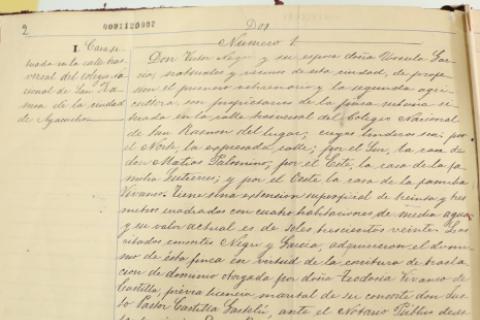 2
0091120997
Dos
Número 1
I. Casa si-
tuada en la calle tras-
versal del colegio na-
cional de San Ra-
mon de la ciudad
de Ayacucho
Don Victor Negri y su esposa doña Ursula Gar-
cia, naturales y vecinos de esta ciudad, de profe-
sion el primero and la segunda agri-
cultora, son propietarios de la finca urbana si-
tuada en la calle trasversal del Colegio Nacional
de San Ramon del lugar, cuyos linderos son: por
el Norte, la expresada calle; por el Sur, la casa de
don Matias Palomino; por el Este, la casa de la fa-
milia Gutierrez; y por el Oeste la casa de la familia
Vivanco. Tiene una extension superficial de treinta y tres
metros cuadrados con cuatro habitaciones de media agua
y su valor actual es de soles trescientos veinte. Los
citados consortes Negri y Garcia, adquirieron el domi-
nio de ésta finca en virtud de la escritura de trasla-
cion de dominio otorgada por doña Teodosia Vivanco de
Castilla, prévia licencia marital de su consorte don Jus-
to Pastor Castilla Gastelú, ante el Notario Público de es-